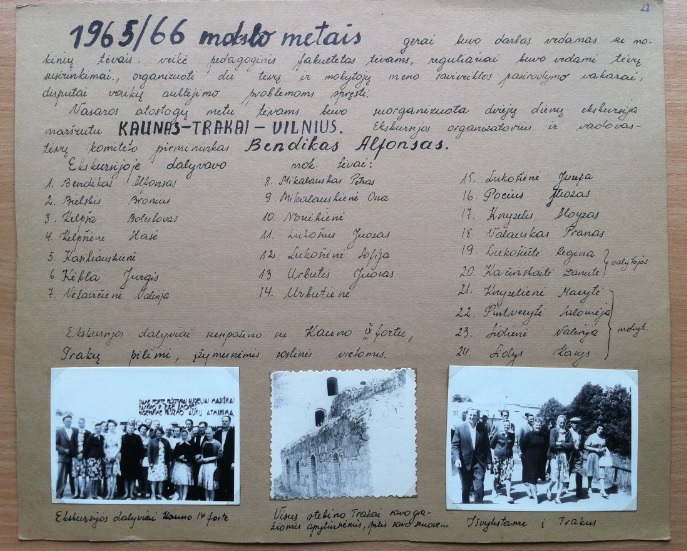 1965/66 mokslo metais gerai buvo darbas vedamas su mo-
kinių tėvais. veikė pedagoginis fakultetas tėvams, reguliariai buvo vedami tėvų
susirinkimai, organizuoti du tėvų ir mokytojų meno saviveiklos pasirodymo vakarai,
disputai vaikų auklėjimo problemoms spręsti.
Vasaros atostogų metu tėvams buvo suorganizuota dviejų dienų ekskursija
maršrutu KAUNAS-TRAKAI-VILNIUS. Ekskursijos organizatorius ir vadovas-
tėvų komiteto pirmininkas Bendikas Alfonsas.
Ekskursijoje dalyvavo mok. tėvai:
1. Bendikas Alfonsas
2. Bielskis Bronius
3. Kelpša Boleslovas
4. Kelpšienė Kasė
5. Kasiliauskienė
6. Kėkla Jurgis
7. Nelaurienė Valerija
8. Mikalauskas Petras
9. Mikalauskienė Ona
10. Noreikienė
11. Lukošius Juozas
12. Lukošienė Zofija
13. Urbutis Juozas
14. Urbutienė
15. Lukošienė Juzefa
16. Pocius Juozas
17. Knyzelis Aloyzas
18. Valauskas Pranas
19. Lukošiūtė Regina
20. Danutė
valytojos
21. Knyzelienė Marytė
22. Salomėja
23. Lidienė Valerija
24. Lidys
mokyt.
Ekskursijos dalyviai susipažino su Kauno IX fortu,
Trakų pilimi, įžymesnėmis sostinės vietomis.
Ekskursijos dalyviai Kauno IX forte
Visus stebino Trakai savo gra-
žiomis apylinkėmis, pilis savo
Išvykstame į Trakus